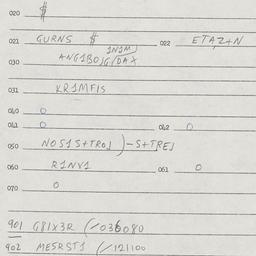 020 $
021 GURNS $ 022 ETAZ+N
1N1M)
030 ANG1BOJG(DAX
031 KR1MFIS
040 0
041 0 042 0
050 NOS1S+TROJ)-S+TREJ
060 R1NV1 061 0
070 0
901 G81X3R (/036080
902 MESRST1 (/121100